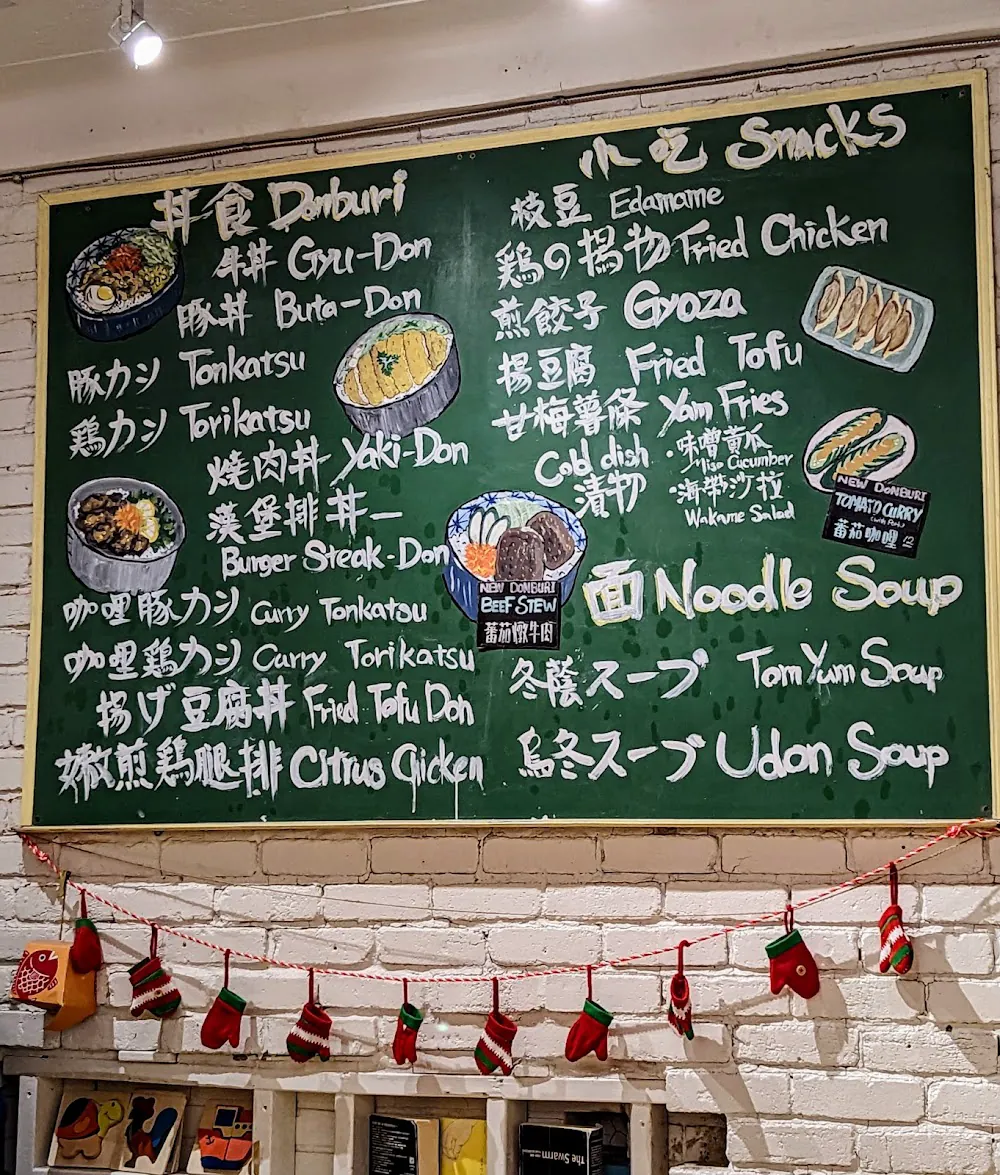 丼食 Donburi
牛丼 Gyu-Don
豚丼 Buta-Don
豚カシ Tonkatsu
鶏カシ Torikatsu
燒肉丼 Yaki-Don
漢堡排丼-
Burger Steak-Don
咖哩豚カシ Curry Tonkatsu
咖哩鶏カシ Curry Torikatsu
揚げ豆腐丼 Fried Tofu Don
嫩煎鶏腿排 Citrus Chicken
NEW DONBURI
BEEF STEW
蕃茄燉牛肉
小吃 Snacks
枝豆 Edamame
鶏の揚物 Fried Chicken
煎餃子 Gyoza
揚豆腐 Fried Tofu
甘梅薯條 Yam Fries
Cold dish
漬物
・味噌黄瓜
Miso Cucumber
・海帶沙拉
Wakame Salad
NEW DONBURI
TOMATO CURRY
(with Pork)
蕃茄咖哩 12
面 Noodle Soup
冬蔭スープ Tom Yum Soup
烏冬スープ Udon Soup
The Swarm